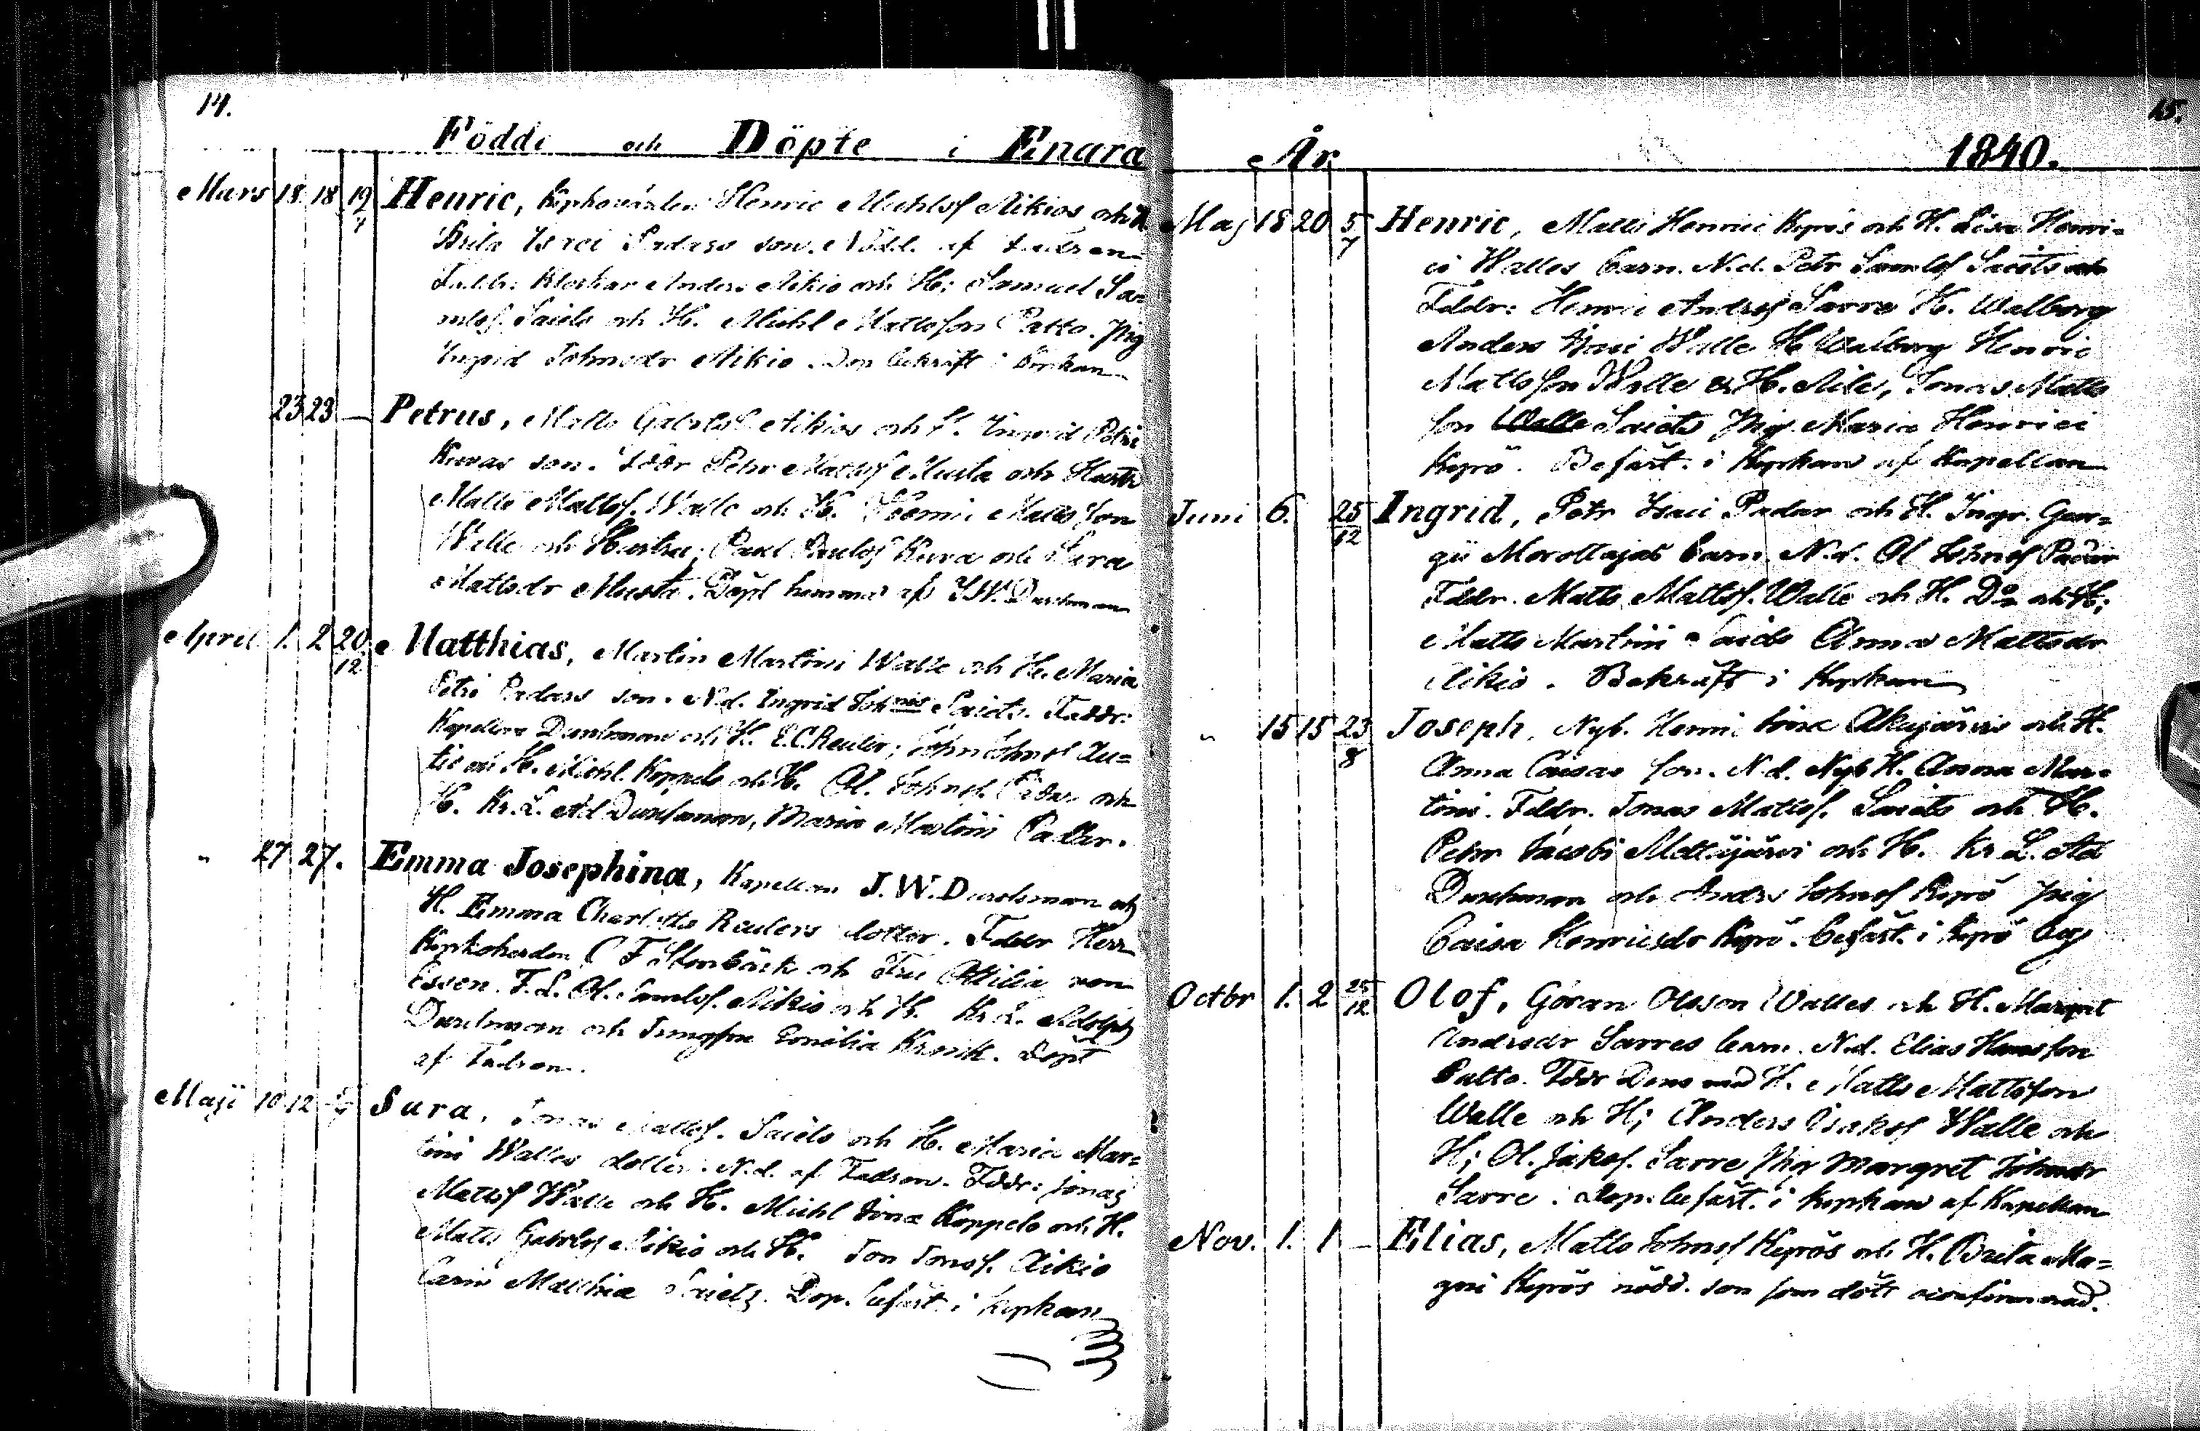 14.
Födde och Döpte i Enara
Mars 18 18 19/7 Henric, Kyrkovärden Henric Michlsf Aikios och H
Brita Isaci Padars son. Nöddl. af Fadren
Faddr. Klockar Anders Aikio och H; Samuel Sa
mlsf. Saiets och H. Michl Mattsson Palto. Pig
Ingrid Johnsdr Aikio. Dop bekräft i Kyrkan
23 23 — Petrus, Matts Gabrlsf Aikios och H. Ingrid Petri
Kuvas son. Fddr Petr Mattsf Musta och Hustr
Matts Mattsf. Walle och H. Matts son
Walle och Hustru; Paul Paulsf Kuva och Sara
Mattsdr Musta. Döpt hemma af J.W. Durchman
April 1. 2 20/12 Matthias, Martin Martini Walle och H. Maria
Petri Padars son. N.d. Ingrid Johnis Saiets. Faddr:
Kapellan Durchman och H. E.C. Reuler; John Johnsf Au=
tio och H. Michl Koppelo och H. Ol. Johnsf. Padar och
H. Kr.L. Ad Durchman, Maria Martini Padar.
" 27 27. Emma Josephina, Kapellan J.W. Durchman och
H. Emma Charlotta Reulers dotter. Faddr Herr
Kyrkoherden C Fällenbäck och Fru Ottilia von
Essen. F.L. Ol. Samlsf. Aikio och H. Kr.L. Adolph
Durchman och Jungfru Emilia Kronk. Döpt
af Fadren.
Maji 10 12 Sara, Jonas Mattsf. Saiets och H. Maria Mar=
tini Walles dotter. N.d. af Fadren. Fddr: Jonas
Mattsf Walle och H. Michl Koppelo och H.
Matts Gabrlsf Aikio och H. Jon Jonsf. Aikio
Carin Matthiæ Saiets. Dop. befäst. i kyrkan
15.
År 1840.
Maj 18 20 5/7 Henric, Matts Henrici Kyrös och H. Lisa Henri=
ci Walles barn. N.d. Petr Samlsf Saiets och
Fddr: Henric Andersf Sarre H. Walborg
Anders Walle H Walborg Henric
Mattsson Walle & H. Aile, Jonas Matts
son Saiets Pig. Maria Henrici
Kyrö. Befäst. i Kyrkan af Kapellan
Juni 6. 25/12 Ingrid, Petr Isaci Padar och H. Ingr. Geor=
gii Morottajas barn. N.d. Ol Johnsf Padar
Fddr. Matts Mattsf. Walle och H. Do och H;
Matts Martini Saiets Anna Mattsdr
Aikio. Bekräft i Kyrkan
" 15 15 23/8 Joseph, Nyb. Henric Akujärvis och H.
Anna Caisas son. N.d. Nyb H. Anna Mar=
tini. Fddr. Jonas Mattsf. Saiets och H.
Petr Jacobi Mettäjärvi och H. Kr L. Ad
Durchman och Andrs Johnsf Kyrö Pig
Caisa Henricsdr Kyrö. befäst. i Kyrö by
Octbr 1. 2 25/12 Olof, Göran Olsson Walles och H. Margret
Andersdr Sarres barn. N.d. Elias Hansson
Palto. Fddr Dens med H. Matts Mattsson
Walle och H; Anders Isaksf Walle och
H; Ol. Jaksf. Sarre Pig Margret Johnsdr
Sarre. Dop. befäst. i kyrkan af Kapellan
Nov. 1. 1 — Elias, Matts Johnsf Kyrös och H. Brita Ma=
gni Kyrös nödd. son som dött oconfirmerad.